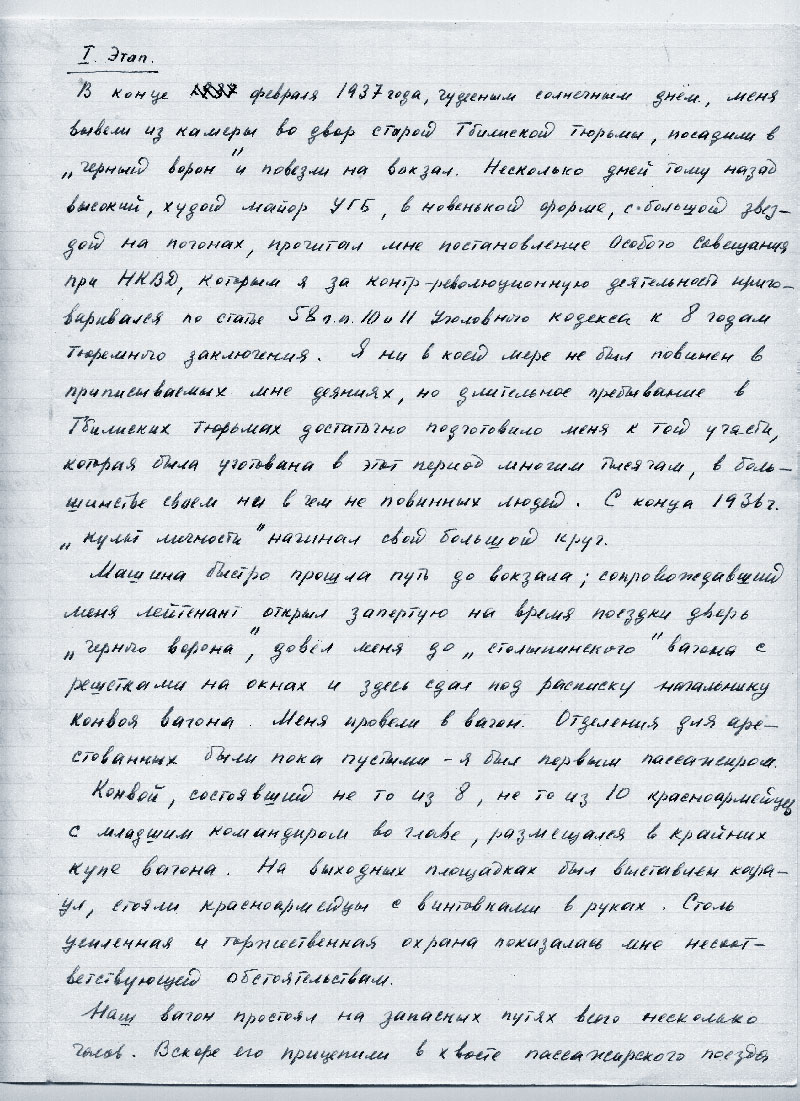 I. Этап.
В конце 1937 февраля 1937 года, чудесным солнечным днём, меня
вывели из камеры во двор старой Тбилиской тюрьмы, посадили в
„черный ворон" и повезли на вокзал. Несколько дней тому назад
высокий, худой майор УГБ, в новенькой форме, с большой звез-
дой на погонах, прочитал мне постановление Особого Совещания
при НКВД, которым я за контр-революционную деятельность приго-
варивался по статье 58 п.п. 10 и 11 Уголовного кодекса к 8 годам
тюремного заключения. Я ни в коей мере не был повинен в
приписываемых мне деяниях, но длительное пребывание в
Тбилиских тюрьмах достаточно подготовило меня к той участи,
которая была уготована в этот период многим тысячам, в боль-
шинстве своем ни в чем не повинных людей. С конца 1936 г.
„культ личности" начинал свой большой круг.
Машина быстро прошла путь до вокзала; сопровождавший
меня лейтенант открыл запертую на время поездки дверь
„черного ворона", довёл меня до „столыпинского" вагона с
решетками на окнах и здесь сдал под расписку начальнику
конвоя вагона. Меня провели в вагон. Отделения для аре-
стованных были пока пустыми - я был первым пассажиром.
Конвой, состоявший не то из 8, не то из 10 красноармейцев
с младшим командиром во главе, размещался в крайних
купе вагона. На выходных площадках был выставлен кара-
ул, стояли красноармейцы с винтовками в руках. Столь
усиленная и торжественная охрана показалась мне несоот-
ветствующей обстоятельствам.
Наш вагон простоял на запасных путях всего несколько
часов. Вскоре его прицепили в хвосте пассажирского поезда